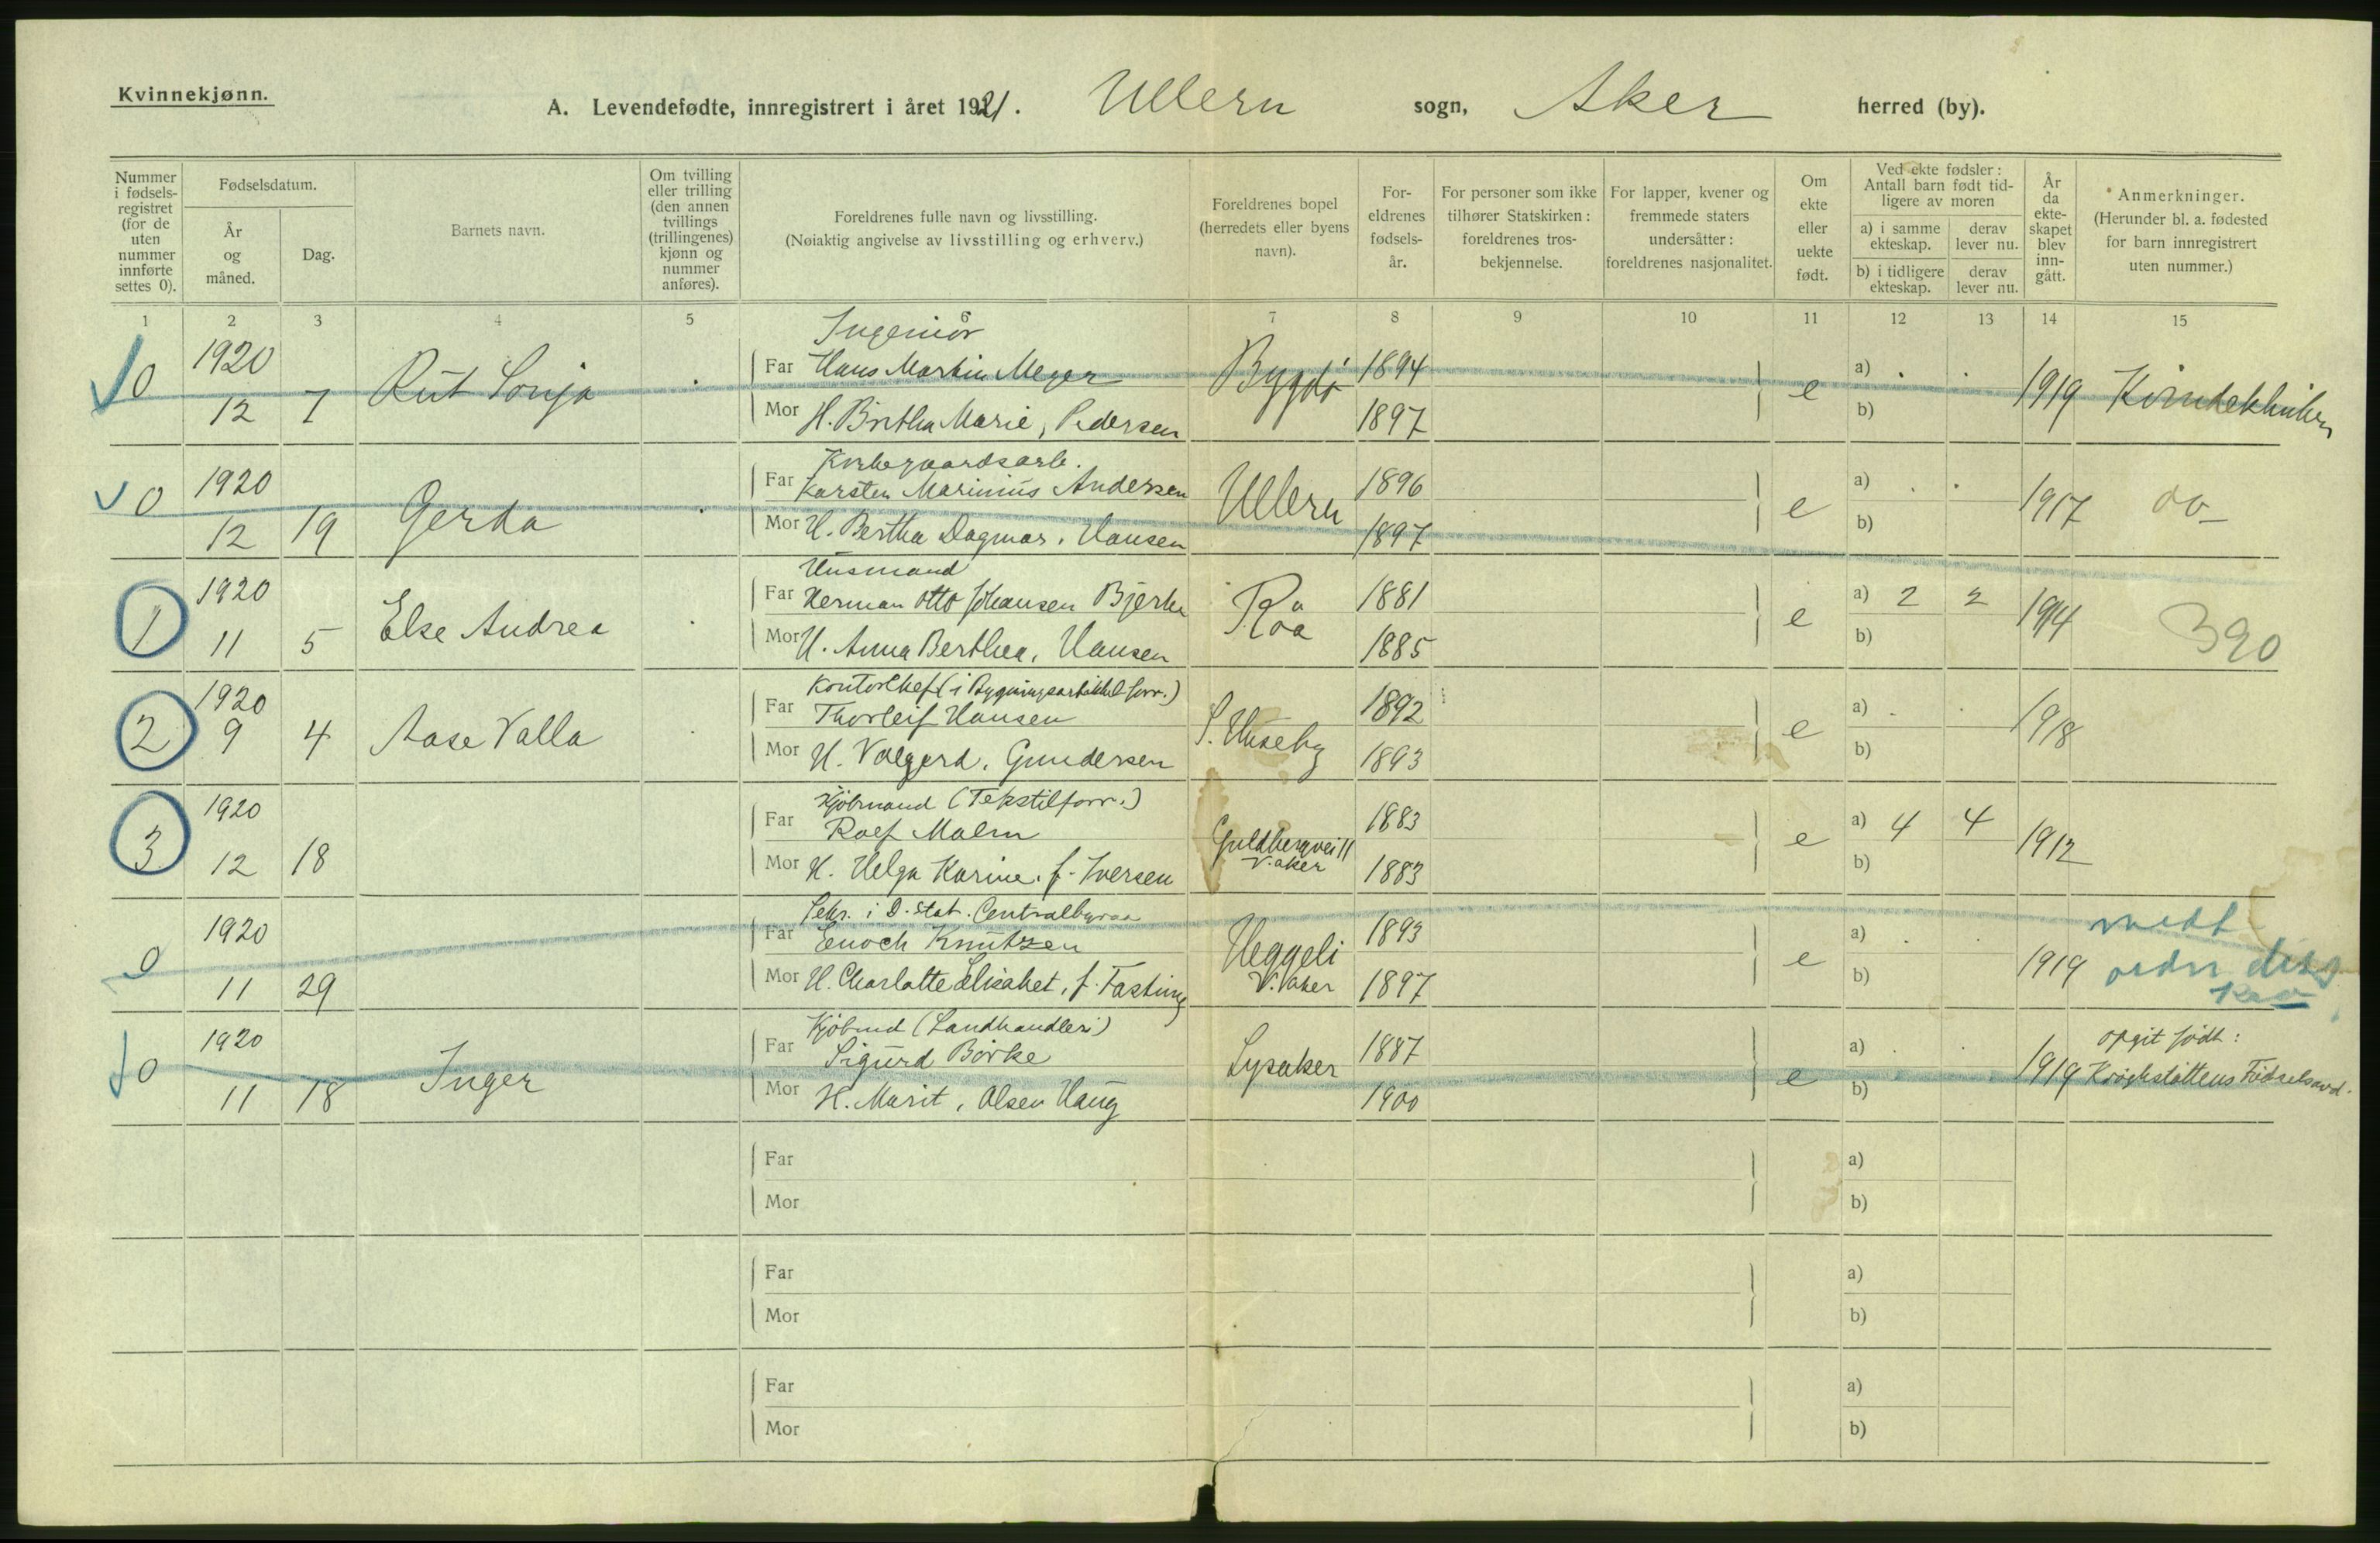 Kvinnekjønn.
A. Levendefødte, innregistrert i året 1921. Ullern sogn, Aker herred (by).
Nummer i fødsels-registret (for de uten nummer innførte settes 0).
Fødselsdatum.
År og måned.
Dag.
Barnets navn.
Om tvilling eller trilling (den annen tvillings (trillingenes) kjønn og nummer anføres).
Foreldrenes fulle navn og livsstilling.
(Nøiaktig angivelse av livsstilling og erhverv.)
Foreldrenes bopel (herredets eller byens navn).
For-eldrenes fødsels-år.
For personer som ikke tilhører Statskirken: foreldrenes tros-bekjennelse.
For lapper, kvener og fremmede staters undersåtter: foreldrenes nasjonalitet.
Om ekte eller uekte født.
Ved ekte fødsler: Antall barn født tid-ligere av moren
a) i samme ekteskap.
derav lever nu.
b) i tidligere ekteskap.
derav lever nu.
År da ekte-skapet blev inn-gått.
Anmerkninger.
(Herunder bl. a. fødested for barn innregistrert uten nummer.)
1 2 3 4 5 6 7 8 9 10 11 12 13 14 15
Ingeniör
0 1920 Far Hans Martin Meyer Bygdö 1894 a) . .
12 7 Rut Sonja . Mor H. Birtha Marie, Pedersen 1897 e b) 1919 Kvindeklinken
Kirkegaardsarb.
0 1920 Far Karsten Marinius Andersen Ullern 1896 a) . .
12 19 Gerda . Mor H. Bertha Dagmar, Hansen 1897 e b) 1917 do
Husmand
1 1920 Far Herman Otto Johansen Bjerke Roa 1881 a) 2 2
11 5 Else Andrea . Mor H. Anna Berthea, Hansen 1885 e b) 1914 390
Kontorchef (i Bygningsartikkel forr.)
2 1920 Far Thorleif Hansen S. Huseby 1892 a) . .
9 4 Aase Valla . Mor H. Valgerd, Gundersen 1893 e b) 1918
Kjöbmand (Tekstilforr.)
3 1920 Far Rolf Malm Guldbergvei 11 V. Aker 1883 a) 4 4
12 18 Mor H. Helga Karine, f. Iversen 1883 e b) 1912
Sekr. i D. Stat. Centralbyraa
0 1920 Far Enoch Knutzen Heggeli V. Aker 1893 a) . .
11 29 Mor H. Charlotte Elisabet, f. Fasting 1897 e b) 1919
Kjöbmd (Landhandleri)
0 1920 Far Sigurd Börke Lysaker 1887 a) . . opgit födt:
11 18 Inger Mor H. Marit, Olsen Haug 1900 e b) 1919 Kroghstöttens Födselsavd.
Far a)
Mor b)
Far a)
Mor b)
Far a)
Mor b)